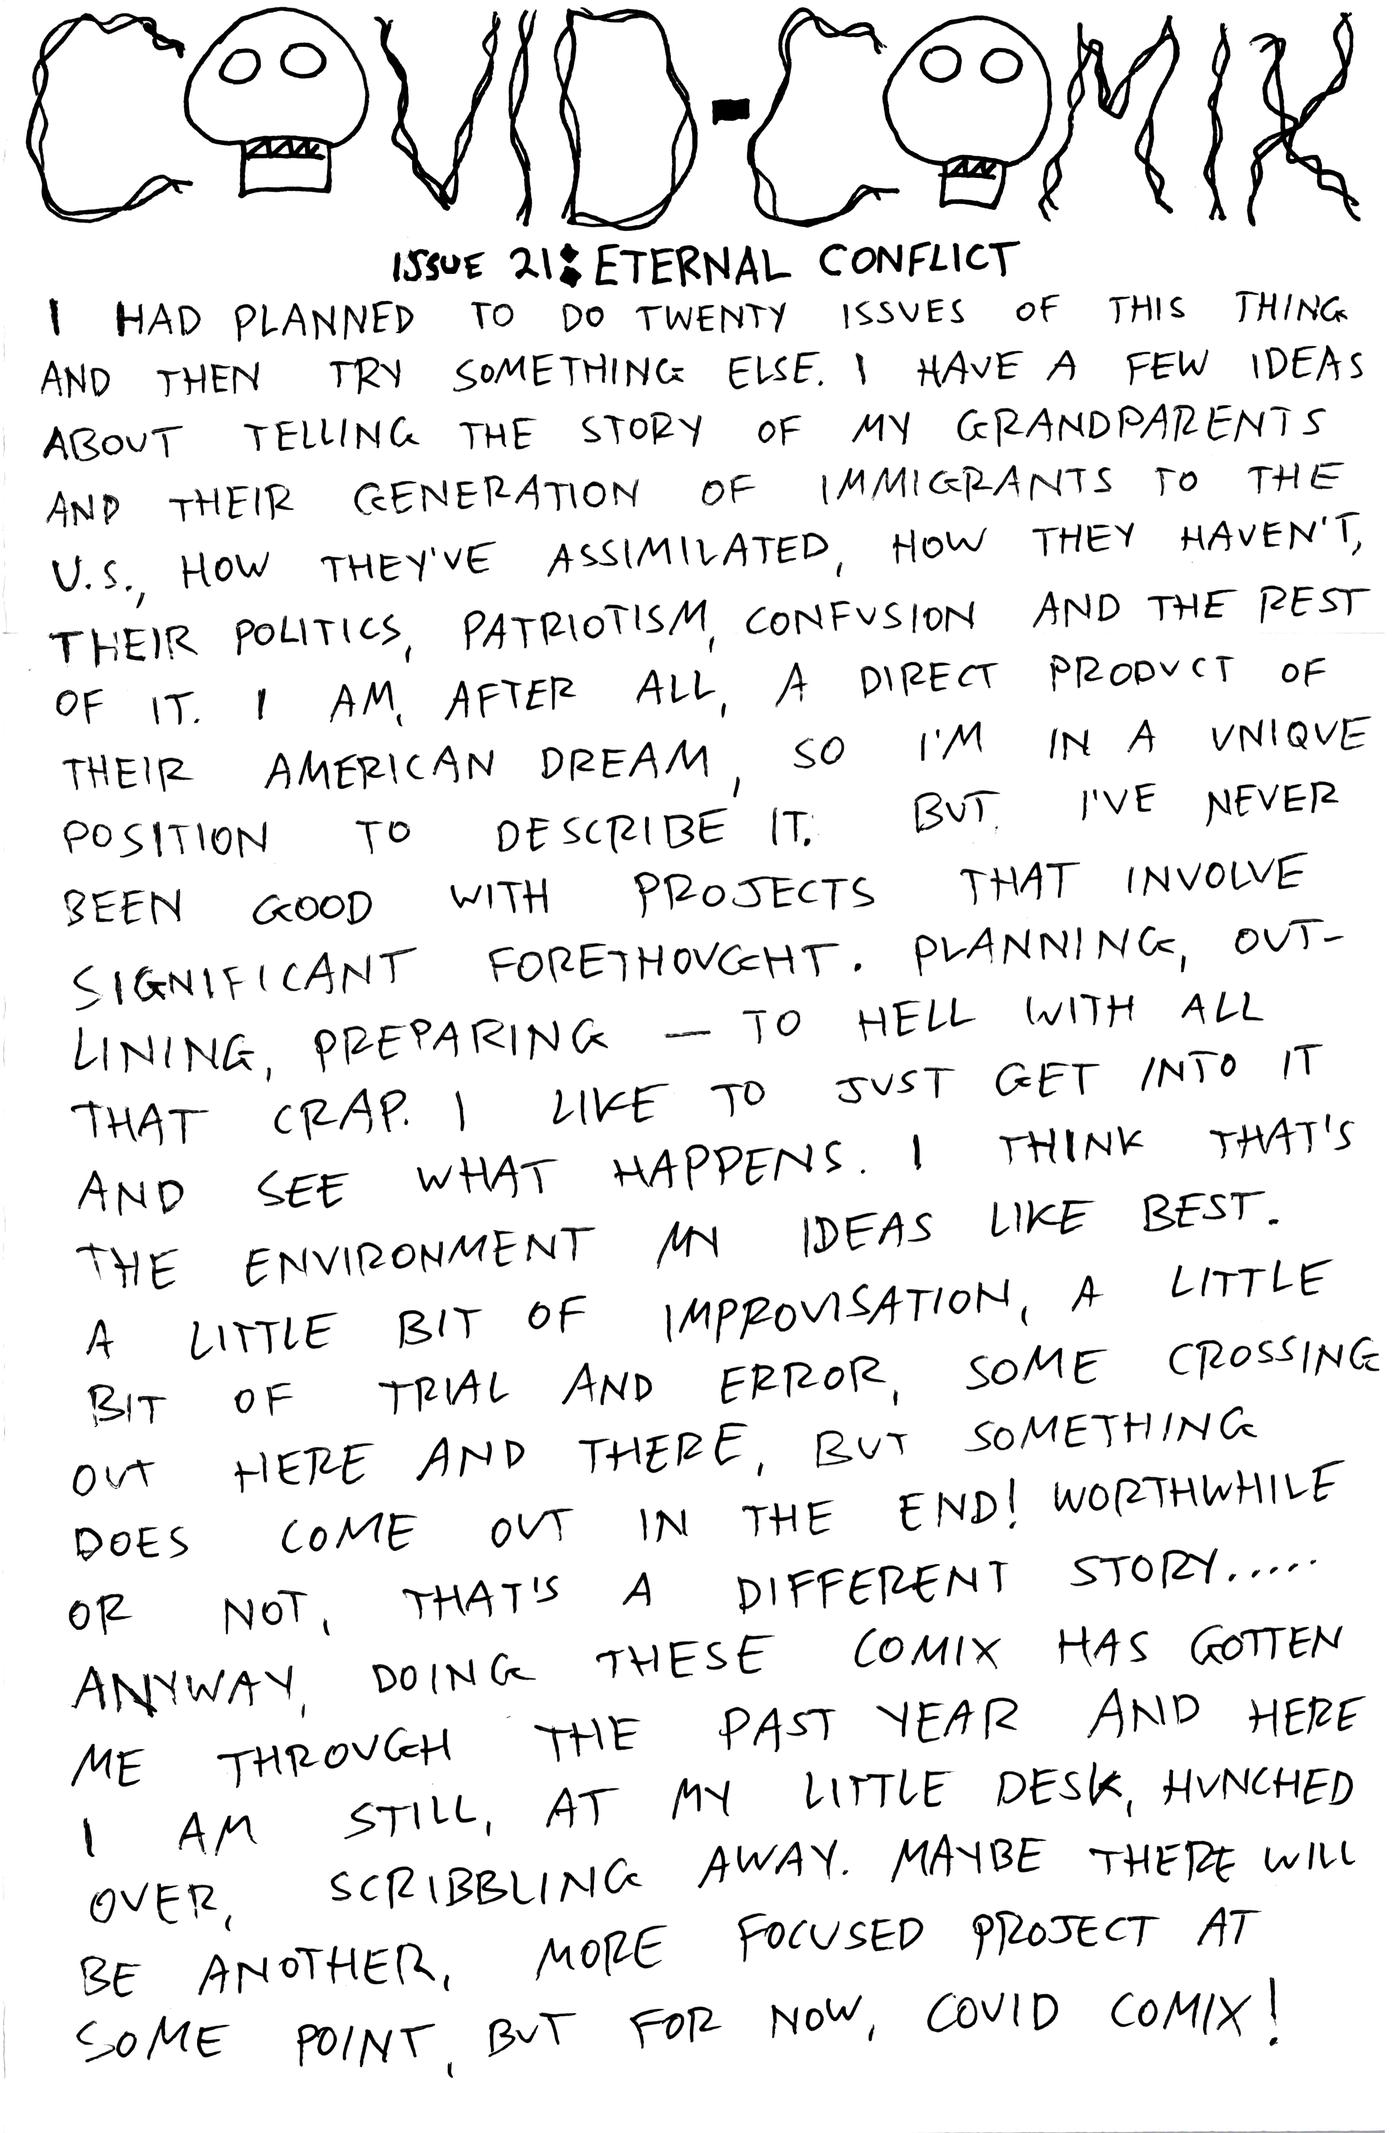 COVID-COMIX
ISSUE 21: ETERNAL CONFLICT
I HAD PLANNED TO DO TWENTY ISSUES OF THIS THING
AND THEN TRY SOMETHING ELSE. I HAVE A FEW IDEAS
ABOUT TELLING THE STORY OF MY GRANDPARENTS
AND THEIR GENERATION OF IMMIGRANTS TO THE
U.S., HOW THEY'VE ASSIMILATED, HOW THEY HAVEN'T,
THEIR POLITICS, PATRIOTISM, CONFUSION AND THE REST
OF IT. I AM, AFTER ALL, A DIRECT PRODUCT OF
THEIR AMERICAN DREAM, SO I'M IN A UNIQUE
POSITION TO DESCRIBE IT. BUT I'VE NEVER
BEEN GOOD WITH PROJECTS THAT INVOLVE
SIGNIFICANT FORETHOUGHT. PLANNING, OUT-
LINING, PREPARING — TO HELL WITH ALL
THAT CRAP. I LIKE TO JUST GET INTO IT
AND SEE WHAT HAPPENS. I THINK THAT'S
THE ENVIRONMENT MY IDEAS LIKE BEST.
A LITTLE BIT OF IMPROVISATION, A LITTLE
BIT OF TRIAL AND ERROR, SOME CROSSING
OUT HERE AND THERE, BUT SOMETHING
DOES COME OUT IN THE END! WORTHWHILE
OR NOT, THAT'S A DIFFERENT STORY.....
ANYWAY, DOING THESE COMIX HAS GOTTEN
ME THROUGH THE PAST YEAR AND HERE
I AM STILL, AT MY LITTLE DESK, HUNCHED
OVER, SCRIBBLING AWAY. MAYBE THERE WILL
BE ANOTHER, MORE FOCUSED PROJECT AT
SOME POINT, BUT FOR NOW, COVID COMIX!